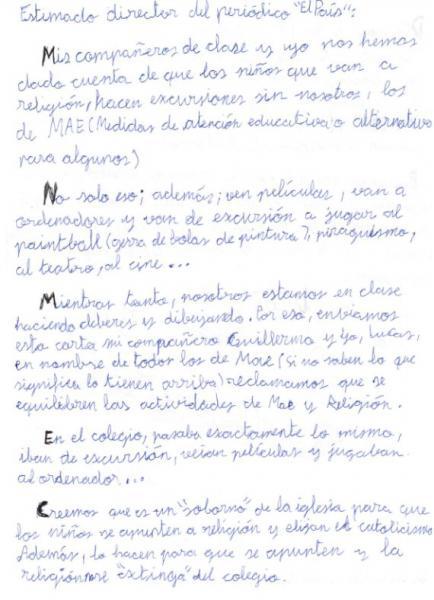 Estimado director del periódico "El País":
Mis compañeros de clase y yo nos hemos
dado cuenta de que los niños que van a
religión, hacen excursiones sin nosotros, los
de MAE (Medidas de atención educativa o alternativa
para algunos)
No solo eso; además; ven películas, van a
ordenadores y van de excursión a jugar al
paintball (gerra de bolas de pintura), piragüismo,
al teatro, al cine...
Mientras tanto, nosotros estamos en clase
haciendo deberes y dibujando. Por eso, enviamos
esta carta mi compañero Guillermo y yo, Lucas,
en nombre de todos los de Mae (si no saben lo que
significa lo tienen arriba) reclamamos que se
equilibren las actividades de Mae y Religión.
En el colegio, pasaba exactamente lo mismo,
iban de excursión, veían películas y jugaban
al ordenador...
Creemos que es un "soborno" de la iglesia para que
los niños se apunten a religión y elijan el catolicismo
Además, lo hacen para que se apunten y la
religión no se "extinga" del colegio.